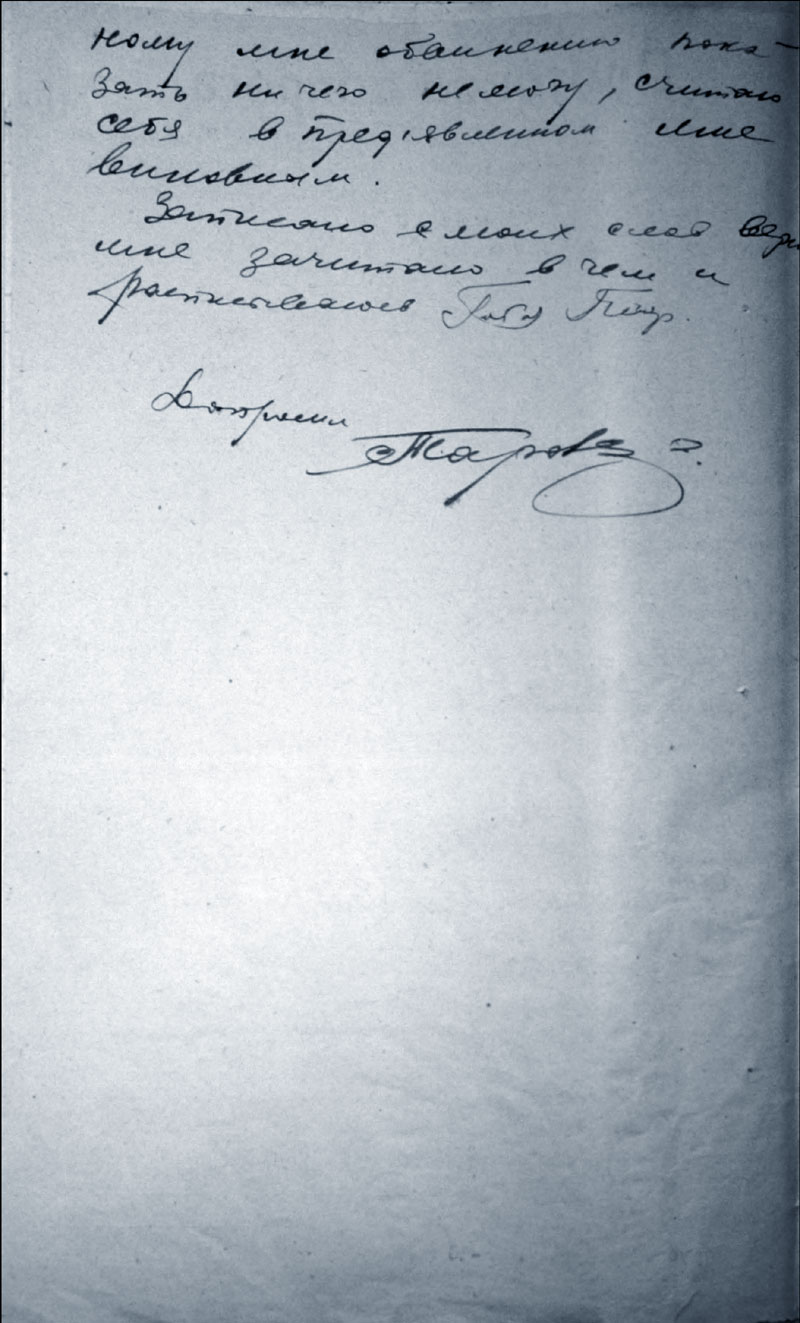 ному мне обвинению пока-
зать ничего немогу, считаю
себя в предъявленном мне
виновным.
Записано с моих слов верн
мне зачитано в чем и
расписываюсь
Допросил